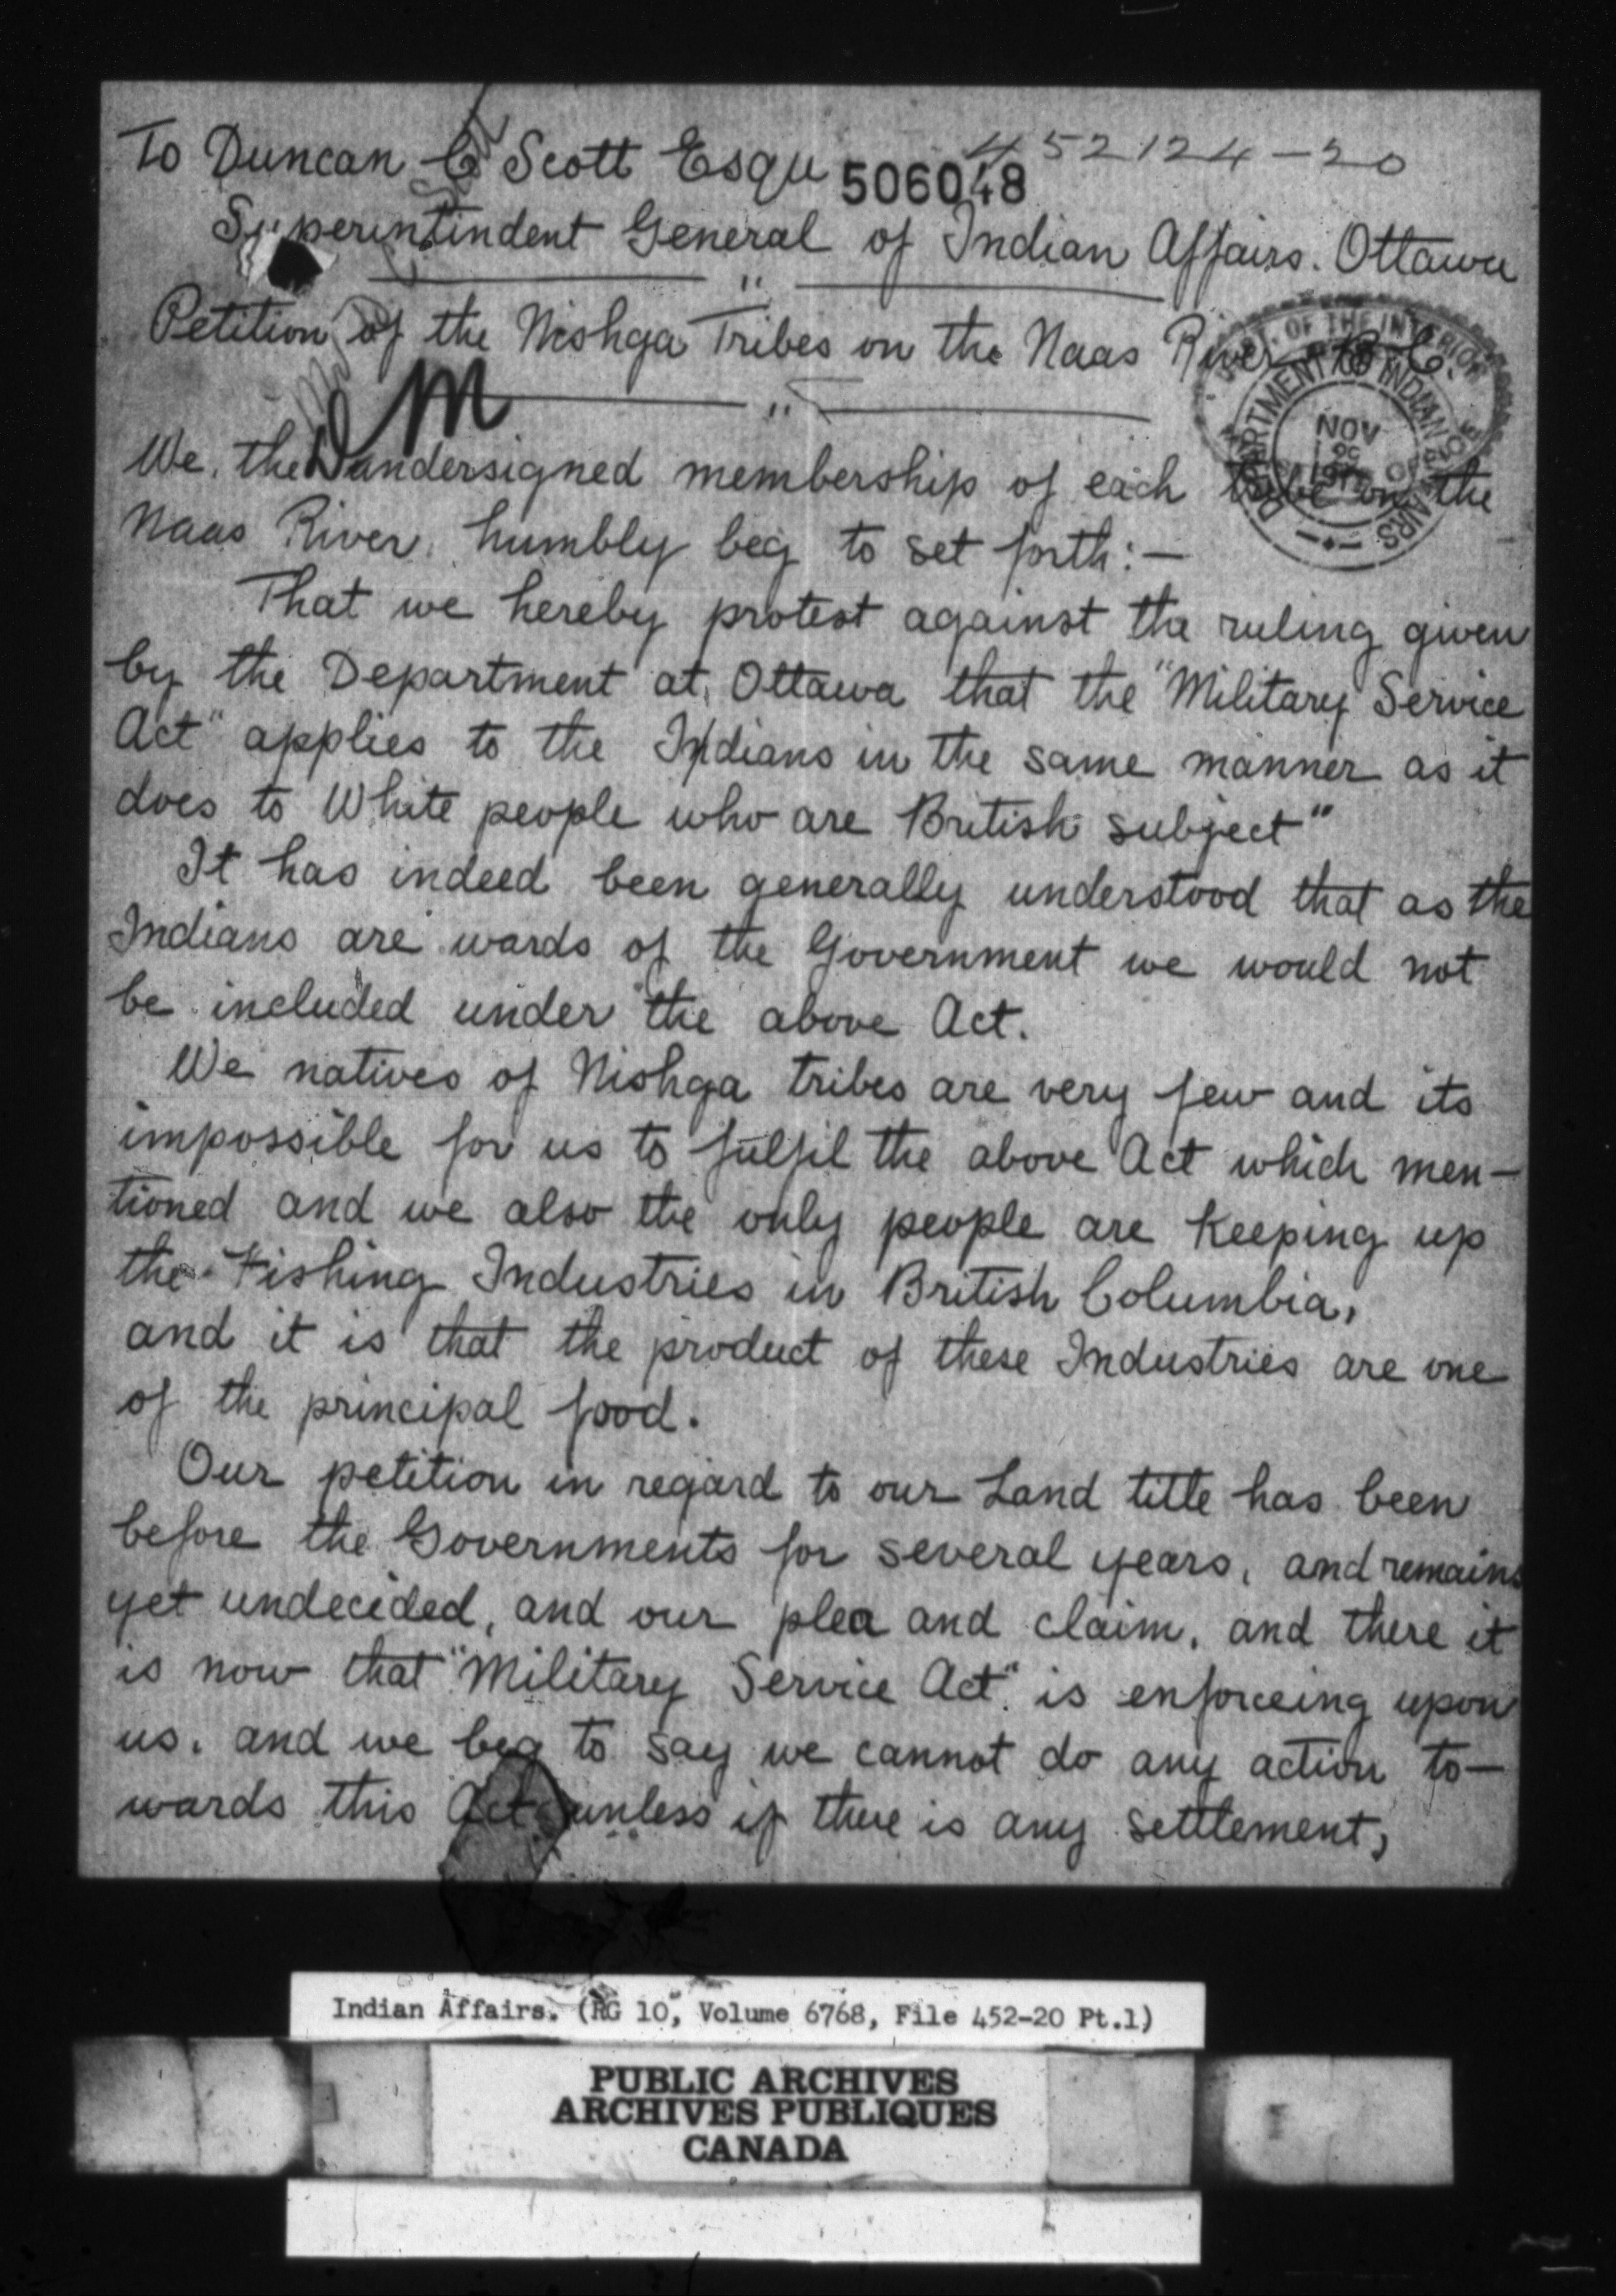 To Duncan C Scott Esqu 506048 452124-20
Superintindent General of Indian Affairs. Ottawa
"
Petition of the Nishga Tribes on the Naas River B.C.
"
DEPT. OF THE INTERIOR
DEPARTMENT OF INDIAN AFFAIRS
NOV
M
We, the undersigned membership of each tribe on the
Naas River, humbly beg to set forth:—
That we hereby protest against the ruling given
by the Department at, Ottawa that the "Military Service
Act" applies to the Indians in the same manner as it
does to White people who are British subject"
It has indeed been generally understood that as the
Indians are wards of the Government we would not
be included under the above Act.
We natives of Nishga tribes are very few and its
impossible for us to fulfil the above Act which men-
tioned and we also the only people are keeping up
the Fishing Industries in British Columbia,
and it is that the product of these Industries are one
of the principal food.
Our petition in regard to our Land title has been
before the Governments for several years, and remains
yet undecided, and our plea and claim, and there it
is now that "Military Service Act" is enforceing upon
us, and we beg to say we cannot do any action to-
wards this Act unless if there is any settlement,
Indian Affairs. (RG 10, Volume 6768, File 452-20 Pt.1)
PUBLIC ARCHIVES
ARCHIVES PUBLIQUES
CANADA